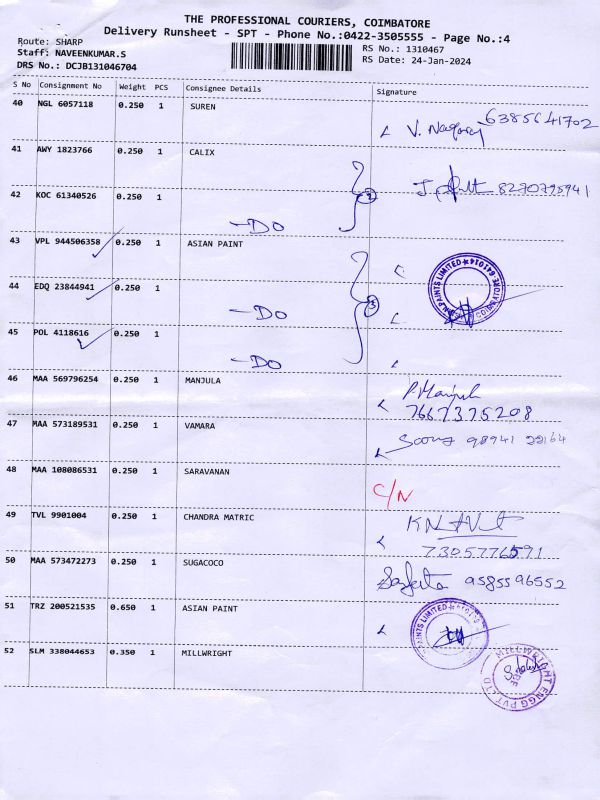 THE PROFESSIONAL COURIERS, COIMBATORE
Delivery Runsheet - SPT - Phone No.:0422-3505555 - Page No.:4
Route: SHARP
Staff: NAVEENKUMAR.S
DRS No.: DCJB131046704
RS No.: 1310467
RS Date: 24-Jan-2024
S No Consignment No Weight PCS Consignee Details Signature
40 NGL 6057118 0.250 1 SUREN
V. Nagaraj 6385641702
41 AWY 1823766 0.250 1 CALIX
2 8270795941
42 KOC 61340526 0.250 1
-DO
43 VPL 944506358 0.250 1 ASIAN PAINT
PAINTS LIMITED ★ 641014
44 EDQ 23844941 0.250 1
-DO 3
45 POL 4118616 0.250 1
-DO
46 MAA 569796254 0.250 1 MANJULA
P. Manjula
7667375208
47 MAA 573189531 0.250 1 VAMARA
98941 22164
48 MAA 108086531 0.250 1 SARAVANAN
C/N
49 TVL 9901004 0.250 1 CHANDRA MATRIC
7305776591
50 MAA 573472273 0.250 1 SUGACOCO
9585596552
51 TRZ 200521535 0.650 1 ASIAN PAINT
PAINTS LIMITED ★
52 SLM 338044653 0.350 1 MILLWRIGHT
MILLWRIGHT ENGG PVT LTD